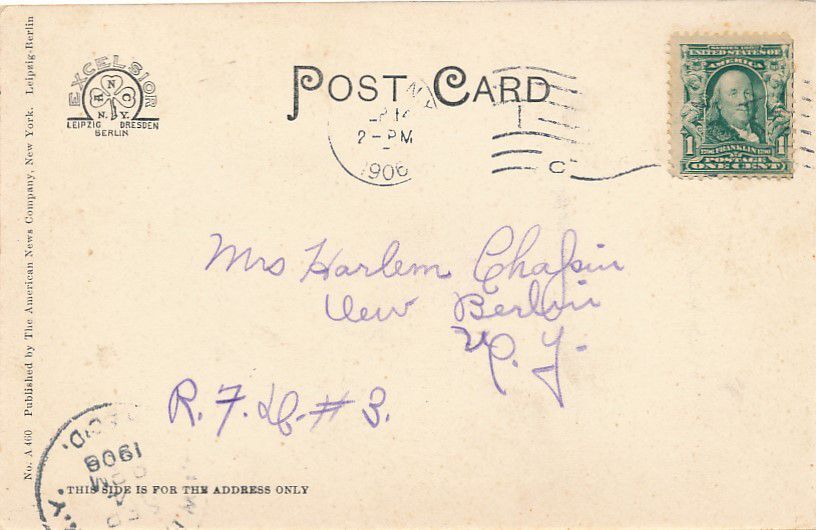 No. A 460 Published by The American News Company, New York. Leipzig-Berlin
EXCELSIOR
N
H C
N.Y.
LEIPZIG DRESDEN
BERLIN
POST CARD
2-PM
1906
C
SERIES 1902
UNITED STATES OF
AMERICA
1 1
1706 FRANKLIN 1790
POSTAGE
ONE CENT
Mrs Harlem Chapin
New Berlin
N. Y.
R. F. D. # 3.
REC'D.
1906
N.Y.
THIS SIDE IS FOR THE ADDRESS ONLY